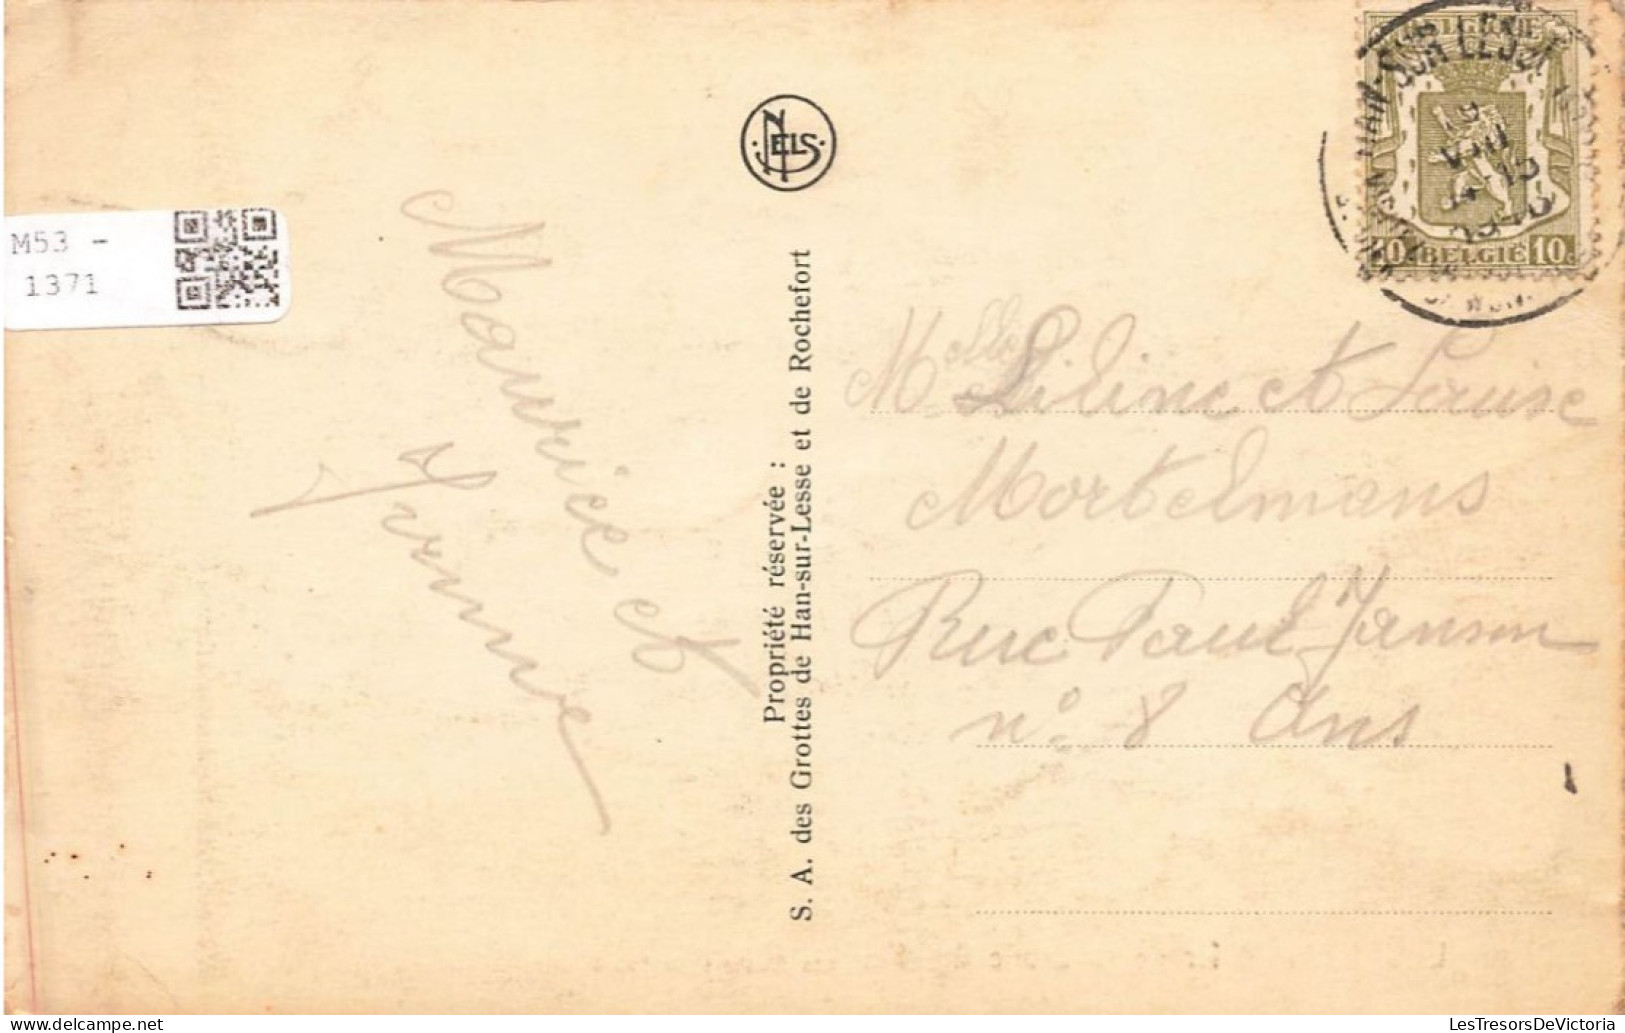 M53 -
1371
Maurice et
Irma
NELS
Propriété réservée :
S. A. des Grottes de Han-sur-Lesse et de Rochefort
HAN-SUR-LESSE
VIII
BELGIE
10 BELGIË 10c
Melles Liline et Louise
Mortelmans
Rue Paul Janson
n° 8 Ans
delcampe.net
LesTresorsDeVictoria